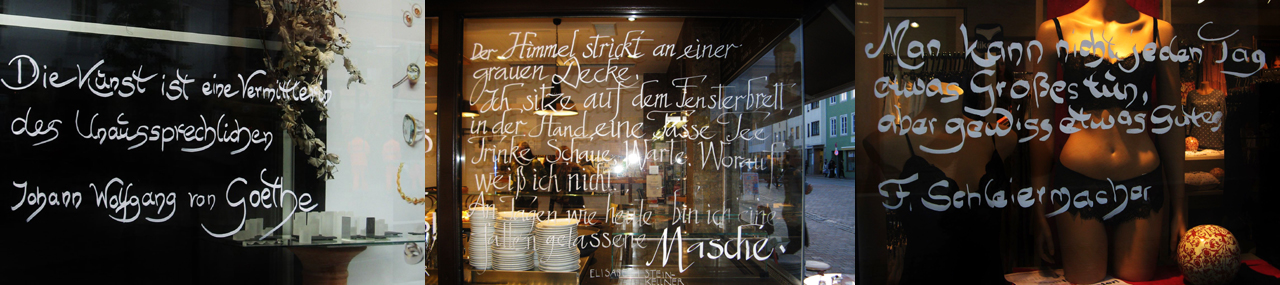 Die Kunst ist eine Vermittlerin
des Unaussprechlichen
Johann Wolfgang von Goethe
Der Himmel strickt an einer
grauen Decke.
Ich sitze auf dem Fensterbrett,
in der Hand eine Tasse Tee
Trinke. Schaue. Warte. Worauf
weiß ich nicht.
An Tagen wie heute bin ich eine
fallen gelassene Masche.
ELISABETH STEIN-
KELLNER
Man kann nicht jeden Tag
etwas Großes tun,
aber gewiss etwas Gutes
F. Schleiermacher